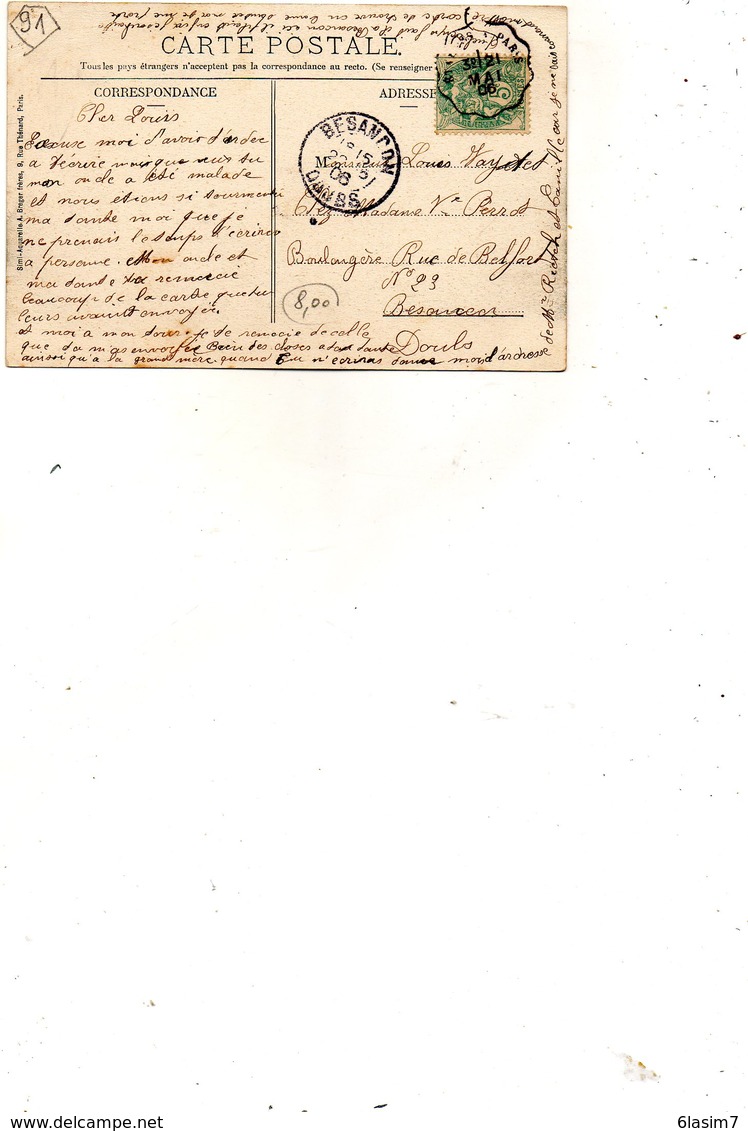 91
CARTE POSTALE.
Tous les pays étrangers n'acceptent pas la correspondance au recto. (Se renseigner
CORRESPONDANCE
ADRESSE
Simi-Aquarelle A. Breger frères, 9, Rue Thénard, Paris.
PARIS
21
MAI
06
BESANCON
DOUBS
06
Cher Louis
Excuse moi d'avoir
a t'écrire mais que veux tu
mon oncle a été malade
et nous étions si tourmenté
ma tante moi que je
ne prenais le temps d'écrire
a personne. Mon oncle et
ma tante te remercie
beaucoup de la carte que tu
leurs avait envoyée
et moi a mon tour je te remercie de celle
que tu m'as envoyée Bien des choses a ta tante
ainsi qu'a la grand mère quand tu m'écriras donne moi l'adresse
de Mr
et Camille car je ne
M
onsieur Louis
Chez Madame Ve Perrot
Boulangère Rue de Belfort
N° 23
Besancon
Doubs
8,00
delcampe.net
6lasim7